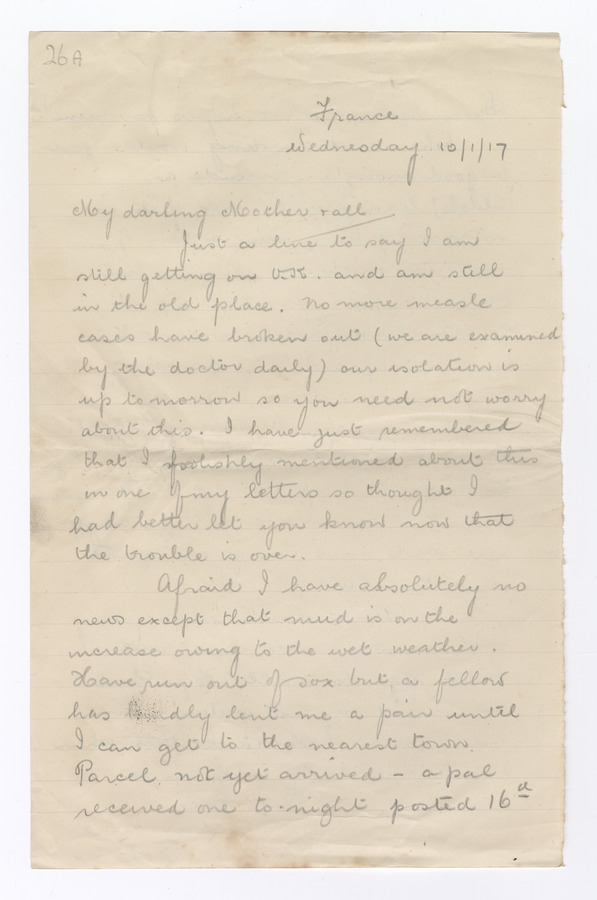 26A
France
Wednesday 10/1/17
My darling Mother & all
Just a line to say I am
still getting on O.K. and am still
in the old place. No more measle
cases have broken out (we are examined
by the doctor daily) our isolation is
up to morrow so you need not worry
about this. I have just remembered
that I foolishly mentioned about this
in one of my letters so thought I
had better let you know now that
the trouble is over.
Afraid I have absolutely no
news except that mud is on the
increase owing to the wet weather.
Have run out of sox but a fellow
has kindly lent me a pair until
I can get to the nearest town.
Parcel not yet arrived - a pal
received one to-night posted 16